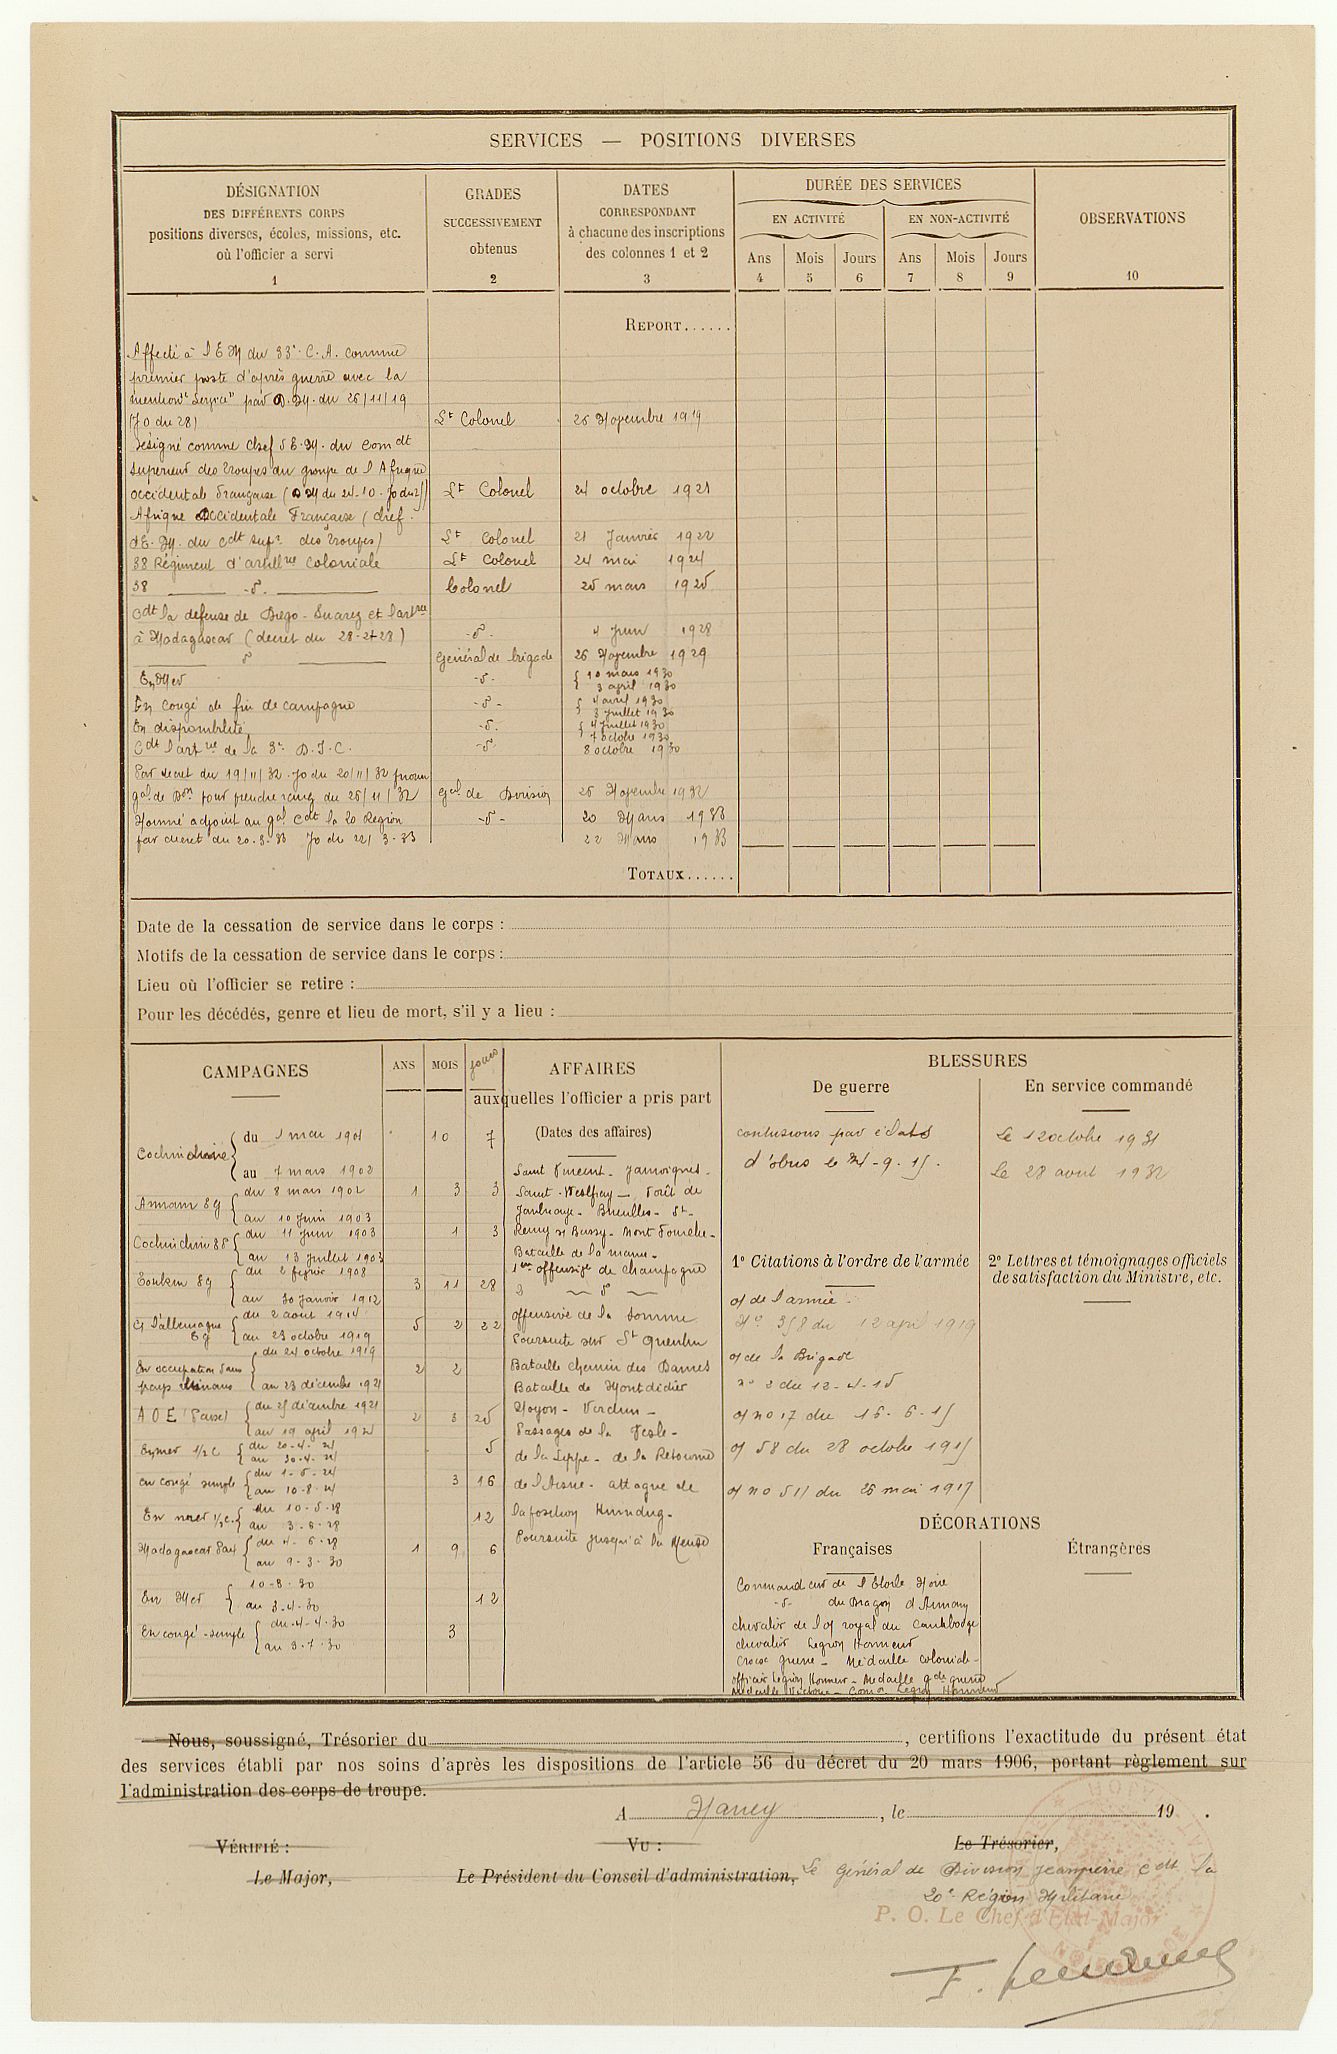 SERVICES — POSITIONS DIVERSES
DÉSIGNATION
DES DIFFÉRENTS CORPS
positions diverses, écoles, missions, etc.
où l'officier a servi
1
GRADES
SUCCESSIVEMENT
obtenus
2
DATES
CORRESPONDANT
à chacune des inscriptions
des colonnes 1 et 2
3
DURÉE DES SERVICES
EN ACTIVITÉ
EN NON-ACTIVITÉ
Ans Mois Jours Ans Mois Jours
4 5 6 7 8 9
OBSERVATIONS
10
REPORT......
Affecté à l'E M du 33e C. A. comme
premier poste d'après guerre avec la
mention "Service" par D. M. du 26/11/19
(JO du 28) Lt Colonel 26 Novembre 1919
Désigné comme Chef d'E. M. du Comdt
supérieur des troupes du groupe de l'Afrique
occidentale française (D M du 24-10- Jo du Lt Colonel 24 octobre 1921
Afrique Occidentale Française (chef
d'E. M. du Cdt supr des troupes) Lt Colonel 21 Janvier 1922
38 Régiment d'artillrie Coloniale Lt Colonel 24 mai 1924
38 — d° — Colonel 25 mars 1925
Cdt la défense de Diégo-Suarez et l'artrie
à Madagascar (décret du 28-2-28) -d°- 4 Juin 1928
— d° — Général de brigade 26 Novembre 1929
En Mer -d°- 10 mars 1930
3 april 1930
En congé de fin de campagne -d°- 4 avril 1930
3 Juillet 1930
En disponibilité -d°- 4 Juillet 1930
7 octobre 1930
Cdt l'artrie de la 3e D. I. C. -d°- 8 octobre 1930
Par décret du 19/11/32 - Jo du 20/11/32 promu
gal de Don pour prendre rang du 26/11/32 Gal de Division 26 Novembre 1932
Nommé adjoint au gal Cdt la 20 Région -d°- 20 Mars 1933
par décret du 20-3-33 Jo du 22/3-33 22 Mars 1933
TOTAUX......
Date de la cessation de service dans le corps :
Motifs de la cessation de service dans le corps :
Lieu où l'officier se retire :
Pour les décédés, genre et lieu de mort, s'il y a lieu :
CAMPAGNES
ANS MOIS jours
Cochinchine du 1 mai 1901 10 7
au 7 mars 1902
Annam Sg du 8 mars 1902 1 3 3
au 10 Juin 1903
Cochinchine du 11 Juin 1903 1 3
au 13 Juillet 1903
Tonkin Sg du 2 février 1908 3 11 28
au 30 Janvier 1912
Ct l'allemagne du 2 aout 1914 5 2 22
au 23 octobre 1919
En occupation dans du 24 octobre 1919 2 2
pays rhénans au 23 décembre 1921
du 25 décembre 1921 2 3 25
au 19 april
En mer 1/2 C du 20-4-24 5
au 30-4-24
en congé simple du 1-5-24 3 16
au 10-8-24
En mer 1/2 C. du 10-5-28 12
au 3-6-28
Madagascar du 4-6-28 1 9 6
au 9-3-30
En Mer 10-3-30 12
au 3-4-30
En congé simple du 4-4-30 3
au 3-7-30
AFFAIRES
auxquelles l'officier a pris part
(Dates des affaires)
Saint Vincent - Jamoignes -
Saint - Forêt de
Jaulnaye - Brieulles - St-
Remy s/ Bussy - Mont
Bataille de la marne -
1ere offensive de champagne
2 — d° —
offensive de la Somme
Poursuite sur St Quentin
Bataille chemin des Dames
Bataille de Montdidier
Noyon - Verdun -
Passages de la Vesle -
de la Suippe - de la Retourne
de l'Aisne - attaque de
la position Hunding -
Poursuite jusqu'à la Meuse
BLESSURES
De guerre
contusions par éclats
d'obus le 24-9-15.
En service commandé
Le 12 octobre 1931
Le 28 aout 1932
1° Citations à l'ordre de l'armée
o/ de l'armée
N° 358 du 12 april 1919
o/ de la Brigade
n° 2 du 12-4-15
o/ no 17 du 16-6-15
o/ 58 du 28 octobre 1915
o/ no 511 du 26 mai 1917
2° Lettres et témoignages officiels
de satisfaction du Ministre, etc.
DÉCORATIONS
Françaises
Commandeur de l'Etoile Noire
-d°- du Dragon d'Annam
chevalier de l'o/ royal du Cambodge
chevalier Legion Honneur
Croix guerre - Médaille coloniale -
officier Legion Honneur - Medaille gde guerre
Medaille Victoire - Comdr Legion Honneur
Étrangères
Nous, soussigné, Trésorier du , certifions l'exactitude du présent état
des services établi par nos soins d'après les dispositions de l'article 56 du décret du 20 mars 1906, portant règlement sur
l'administration des corps de troupe.
A Nancy , le 19 .
VÉRIFIÉ : VU : Le Trésorier,
Le Major, Le Président du Conseil d'administration, Le Général de Division Jeanpierre Cdt la
20e Région Militaire
P. O. Le Chef d'Etat-Major